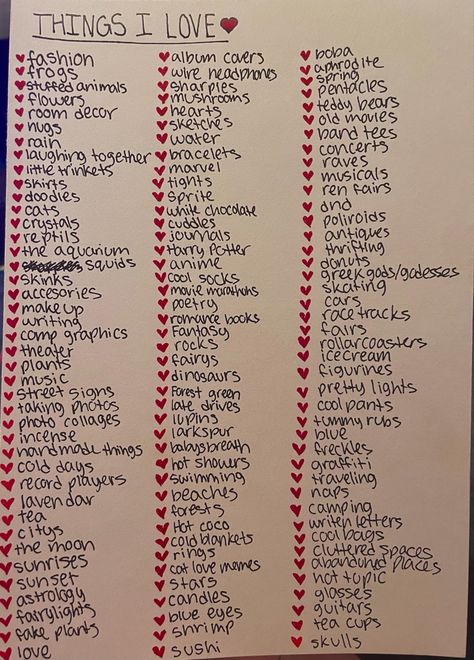 THINGS I LOVE
fashion
frogs
stuffed animals
flowers
room decor
hugs
rain
laughing together
little trinkets
skirts
doodles
cats
crystals
reptils
the aquarium
squids
skinks
accesories
make up
writing
comp graphics
theater
plants
music
street signs
taking photos
photo collages
incense
handmade things
cold days
record players
lavendar
tea
citys
the moon
sunrises
sunset
astrology
fairylights
fake plants
love
album covers
wire headphones
sharpies
mushrooms
hearts
sketches
water
bracelets
marvel
tights
sprite
white chocolate
cuddles
journals
harry potter
anime
cool socks
movie marathons
poetry
romance books
Fantasy
rocks
fairys
dinosaurs
forest green
late drives
lupins
larkspur
babysbreath
hot showers
swimming
beaches
forests
Hot coco
cold blankets
rings
cat love memes
stars
candles
blue eyes
shrimp
sushi
boba
aphrodite
spring
pentacles
teddy bears
old movies
band tees
concerts
raves
musicals
ren fairs
dnd
poliroids
antiques
thrifting
donuts
greek gods/godesses
skating
cars
race tracks
fairs
rollarcoasters
icecream
figurines
pretty lights
cool pants
tummy rubs
blue
freckles
graffiti
traveling
naps
camping
writen letters
cool bags
cluttered spaces
abandoned places
hot topic
glasses
guitars
tea cups
skulls